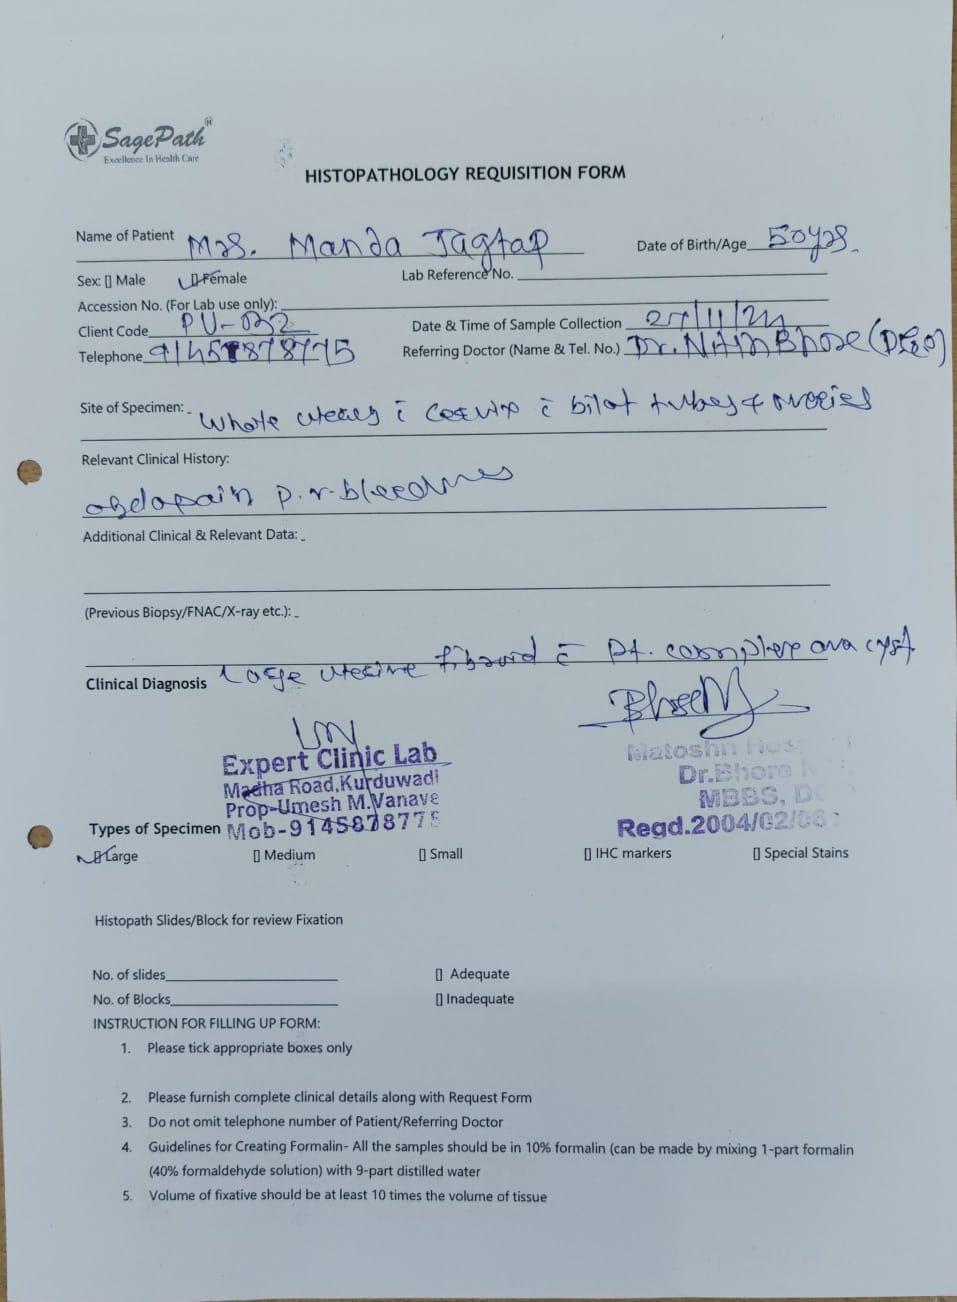 SagePath®
Excellence In Health Care
HISTOPATHOLOGY REQUISITION FORM
Name of Patient Mrs. Manda Jagtap Date of Birth/Age 50yrs.
Sex: [] Male [] Female Lab Reference No.
Accession No. (For Lab use only):
Client Code PU-032 Date & Time of Sample Collection 27/11/24
Telephone 9145878775 Referring Doctor (Name & Tel. No.) Dr. Nitin Bhose
Site of Specimen: - Whole uterus c̄ cervix c̄ bilat tubes & ovories
Relevant Clinical History:
abdopain p.v. bleeding
Additional Clinical & Relevant Data: -
(Previous Biopsy/FNAC/X-ray etc.): -
Clinical Diagnosis Large uterine fibroid c̄ complex ova cyst
Expert Clinic Lab
Madha Road, Kurduwadi
Prop-Umesh M.Vanave
Mob-914587877
Matoshri Hos
Dr.Bhore N
MBBS, D
Regd.2004/02/06
Types of Specimen
[] Large [] Medium [] Small [] IHC markers [] Special Stains
Histopath Slides/Block for review Fixation
No. of slides [] Adequate
No. of Blocks [] Inadequate
INSTRUCTION FOR FILLING UP FORM:
1. Please tick appropriate boxes only
2. Please furnish complete clinical details along with Request Form
3. Do not omit telephone number of Patient/Referring Doctor
4. Guidelines for Creating Formalin- All the samples should be in 10% formalin (can be made by mixing 1-part formalin
(40% formaldehyde solution) with 9-part distilled water
5. Volume of fixative should be at least 10 times the volume of tissue